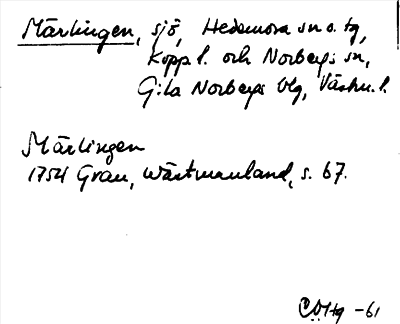 Märlingen, sjö, Hedemora sn o. tg,
Kopp. l. och Norbergs sn,
Gila Norbergs blg, Västm. l.
Märlingen
1754 Grau, Wästmanland, s. 67.
-61